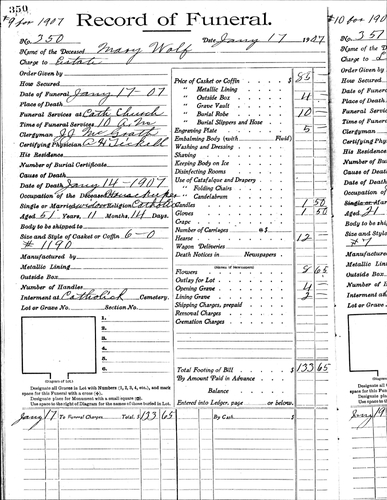 350
#9 for 1907
Record of Funeral.
No. 350 Date Jany 17 1907
Name of the Deceased Mary Wolf
Charge to Estate
Order Given by
How Secured
Date of Funeral Jany 17 07
Place of Death
Funeral Services at Cath Church
Time of Funeral Services 10 A.M.
Clergyman J.J. McGrath
Certifying Physician
His Residence
Number of Burial Certificate
Cause of Death
Date of Death Jany 14 - 1907
Occupation of the Deceased Housekeeper
Single or Married Religion Catholic
Aged 51 Years, 11 Months, 14 Days.
Body to be shipped to
Size and Style of Casket or Coffin 6-0
# 1190
Manufactured by
Metallic Lining
Outside Box
Number of Handles
Interment at Catholick Cemetery.
Lot or Grave No. Section No.
1.
2.
3.
4.
5.
6.
(Diagram of Lot)
Designate all Graves in Lot with Numbers (1, 2, 3, 4, etc.), and mark
space for this Funeral with a cross (+).
Designate place for Monument with a small square (□).
Use space to right of Diagram for the names of those buried in Lot.
Price of Casket or Coffin $ 85 -
" Metallic Lining
" Outside Box 4 -
" Grave Vault
" Burial Robe 10 -
" Burial Slippers and Hose
Engraving Plate 5 -
Embalming Body (with Fluid)
Washing and Dressing
Shaving
Keeping Body on Ice
Disinfecting Rooms
Use of Catafalque and Drapery
" Folding Chairs
" Candelabrum
Candles 1 50
Gloves 1 50
Crape
Number of Carriages @ $
Hearse 12 -
Wagon Deliveries
Death Notices in Newspapers
Flowers 8 65
Outlay for Lot
Opening Grave 4 -
Lining Grave 2
Shipping Charges, prepaid
Removal Charges
Cremation Charges
Total Footing of Bill $ 133 65
By Amount Paid in Advance
Balance
Entered into Ledger, page or below.
Jany 17 To Funeral Charges Total, $ 133 65 By Cash $
#10 for 190
No. 351
Name of the
Charge to
Order Given
How Secured
Date of Fune
Place of Dea
Funeral Serv
Time of Fune
Clergyman
Certifying P
His Residen
Number of B
Cause of De
Date of Dea
Occupation
Single or Ma
Aged 21
Body to be s
Size and Sty
#7
Manufactur
Metallic Lin
Outside Box
Number of H
Interment at
Lot or Grave
(Diag
Designate
space for this
Designate
Use space to
Jany 19